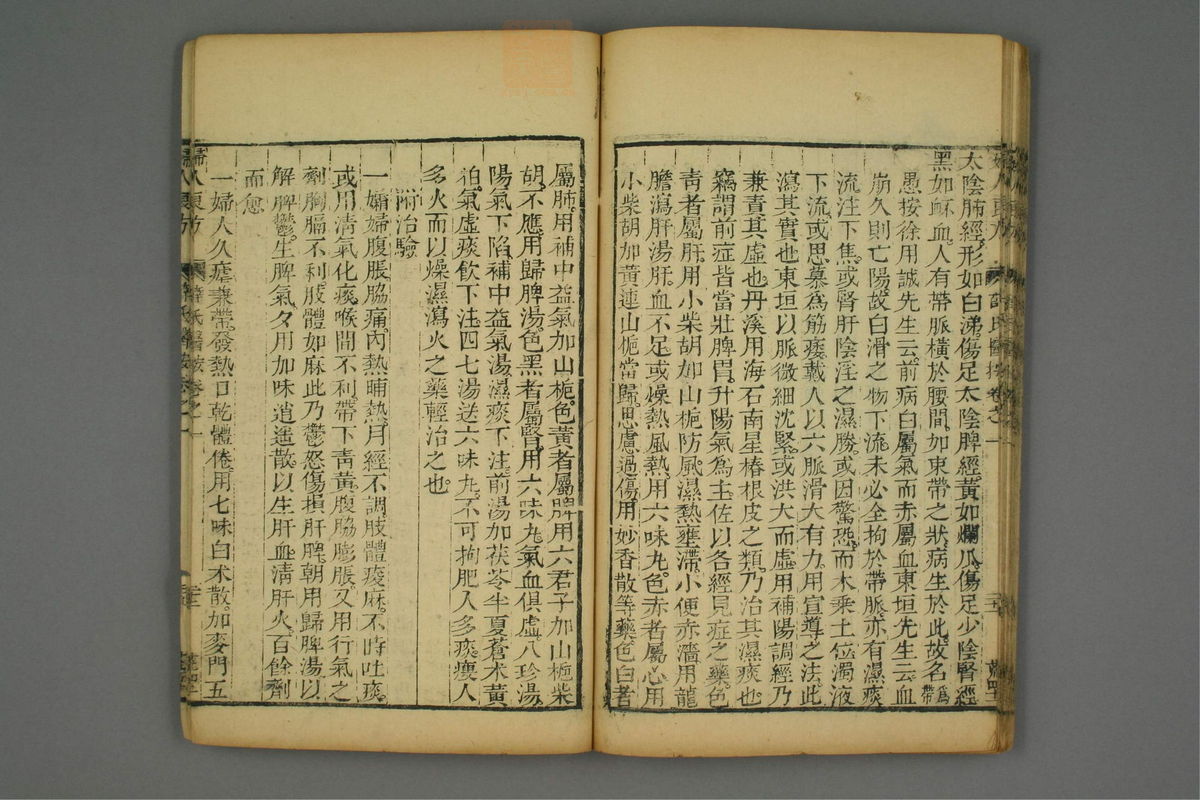 太陰肺經形如白涕傷足太陰脾經黃如爛瓜傷足少陰腎經
黑如衃血人有帶脈橫於腰間如束帶之狀病生於此故名爲帶
愚按徐用誠先生云前病白屬氣而赤屬血東垣先生云血
崩久則亡陽故白滑之物下流未必全拘於帶脈亦有濕痰
流注下焦或腎肝陰淫之濕勝或因驚恐而木乘土位濁液
下流或思慕為筋痿戴人以六脈滑大有力用宣導之法此
瀉其實也東垣以脈微細沈緊或洪大而虛用補陽調經乃
兼責其虛也丹溪用海石南星椿根皮之類乃治其濕痰也
竊謂前症皆當壯脾胃升陽氣為主佐以各經見症之藥色
青者屬肝用小柴胡加山梔防風濕熱壅滯小便赤濇用龍
膽瀉肝湯肝血不足或燥熱風熱用六味丸色赤者屬心用
小柴胡加黃連山梔當歸思慮過傷用妙香散等藥色白者
屬肺用補中益氣加山梔色黃者屬脾用六君子加山梔柴
胡不應用歸脾湯色黑者屬腎用六味丸氣血俱虛八珍湯
陽氣下陷補中益氣湯濕痰下注前湯加茯苓半夏蒼术黃
栢氣虛痰飲下注四七湯送六味丸不可拘肥人多痰瘦人
多火而以燥濕瀉火之藥輕治之也
附治驗
一孀婦腹脹脇痛內熱晡熱月經不調肢體痠麻不時吐痰
或用清氣化痰喉間不利帶下青黃腹脇膨脹又用行氣之
劑胸膈不利肢體如麻此乃鬱怒傷損肝脾朝用歸脾湯以
解脾鬱生脾氣夕用加味逍遙散以生肝血清肝火百餘劑
而愈
一婦人久瘧兼帶發熱口乾體倦用七味白术散加麥門五
婦人良方
薛氏醫按卷之一